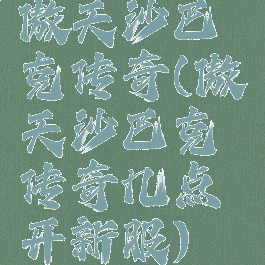 傲天沙巴
克传奇(傲
天沙巴克
传奇几点
开新服)